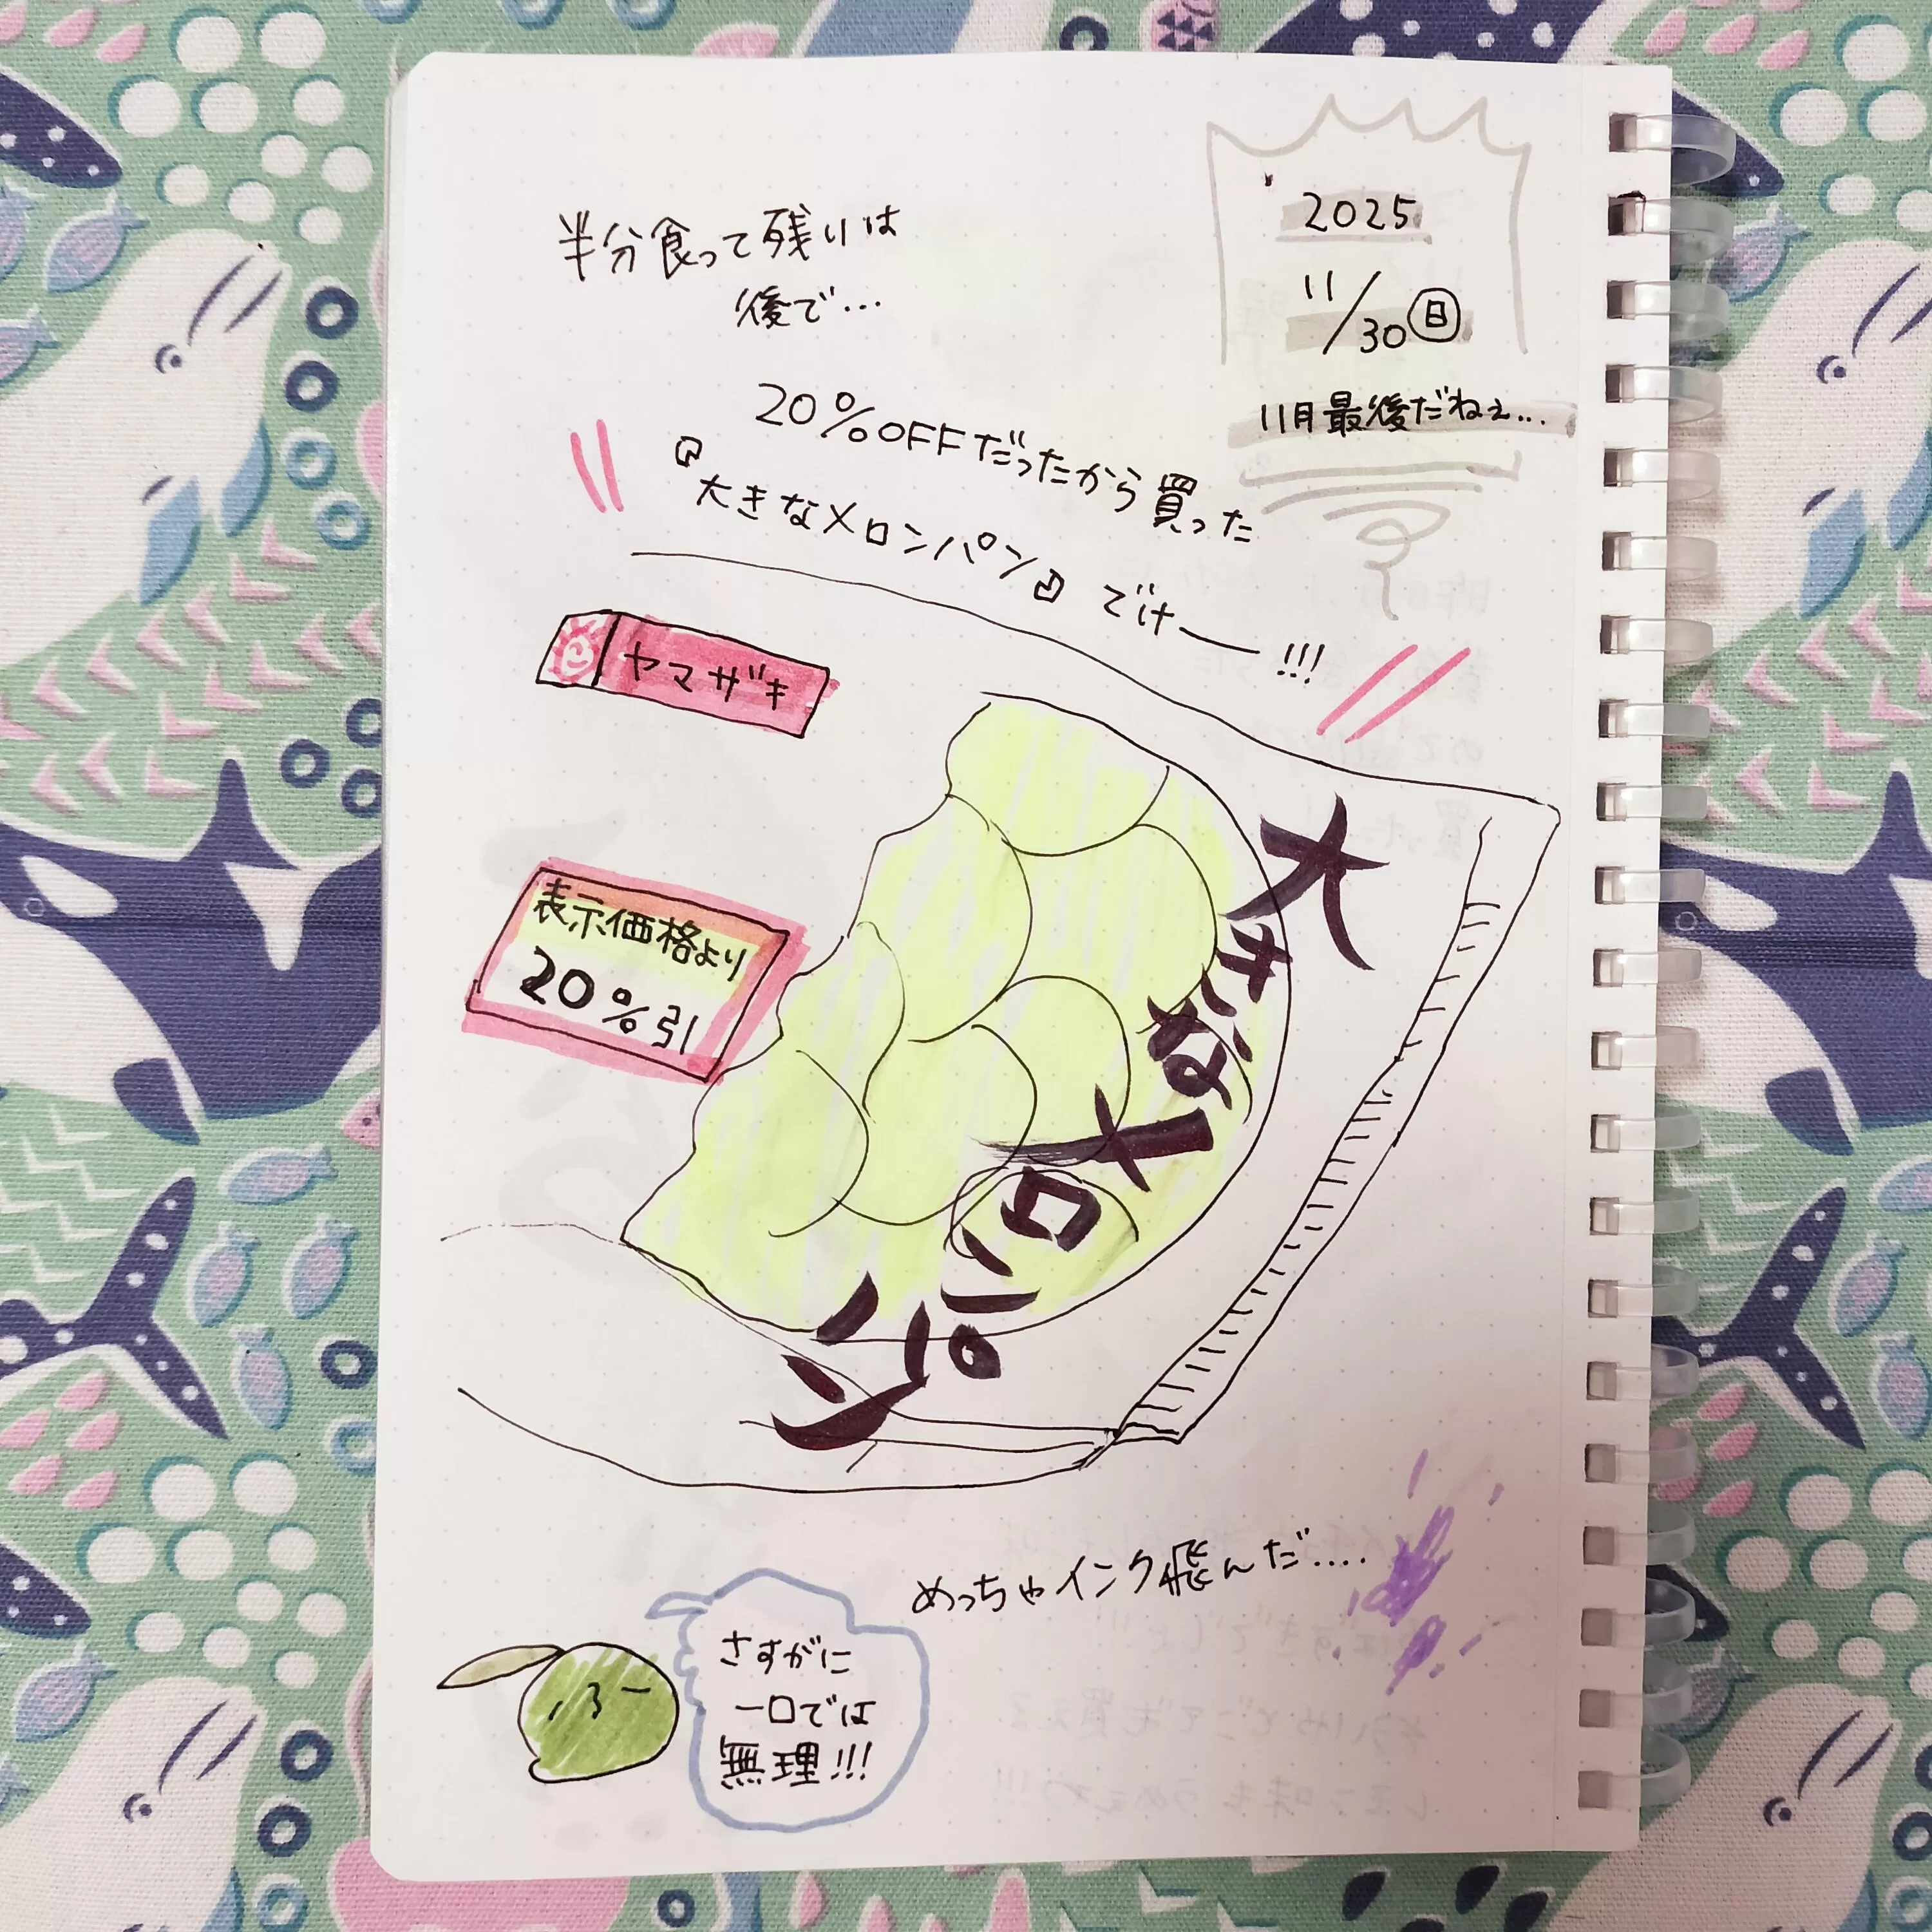 2025
11/30㊐
11月最後だねぇ...
半分食って残りは
後で...
20%OFFだったから買った
『大きなメロンパン』でけー!!!
ヤマザキ
表示価格より
20%引
大きなメロンパン
めっちゃインク飛んだ....
さすがに
一口では
無理!!!